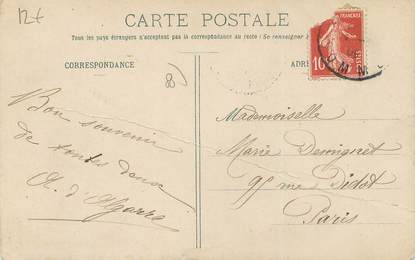 12€
CARTE POSTALE
Tous les pays étrangers n'acceptant pas la correspondance au recto (Se renseigner à
CORRESPONDANCE
ADRE
80
10
Bon souvenir
de toutes deux
Mademoiselle
Marie
95 rue Didot
Paris